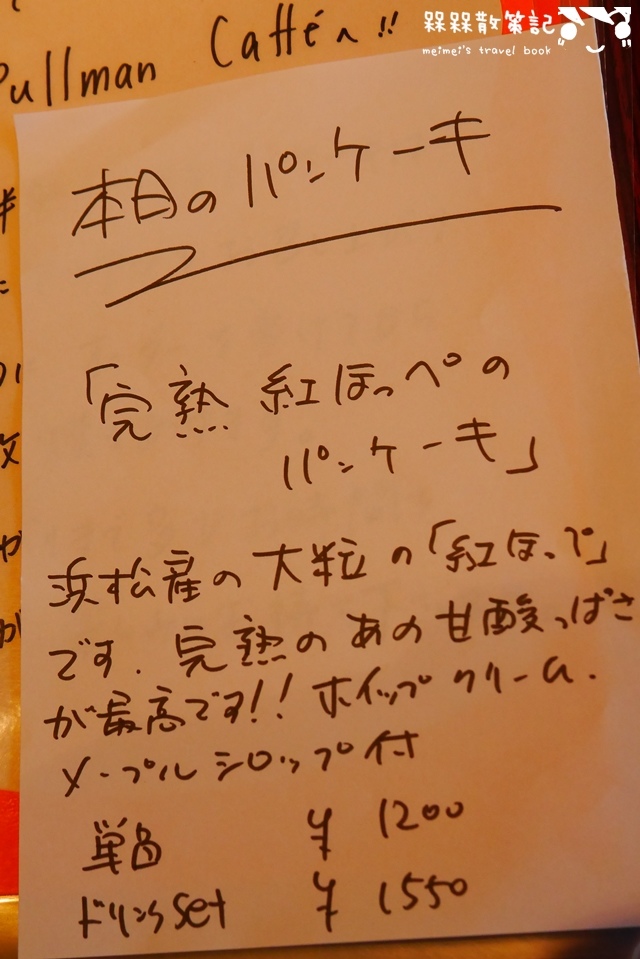 槑槑散策記
meimei's travel book
Pullman Caffé へ!!
本日の パンケーキ
「完熟 紅ほっぺの
パンケーキ」
浜松産の大粒の「紅ほっぺ」
です. 完熟のあの甘酸っぱさ
が最高です!! ホイップクリーム.
メープルシロップ付
単品 ¥ 1200
ドリンクset ¥ 1550